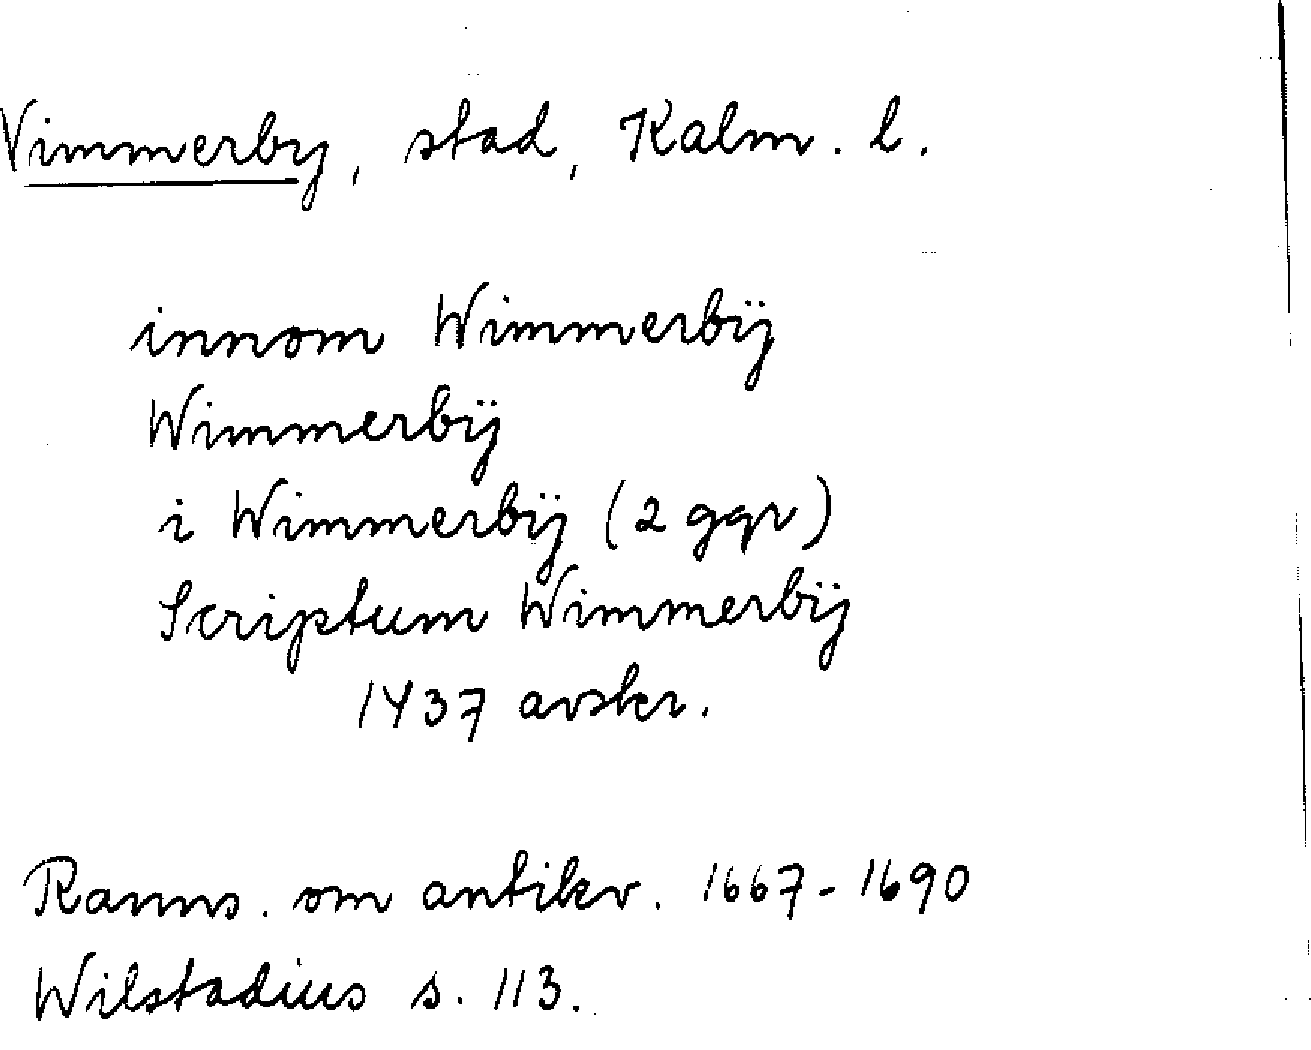 Vimmerby, stad, Kalm. l.
innom Wimmerbÿ
Wimmerbÿ
i Wimmerbÿ (2 ggr)
Scriptum Wimmerbÿ
1437 avskr.
Ranns. om antikv. 1667-1690
Wilstadius s. 113.